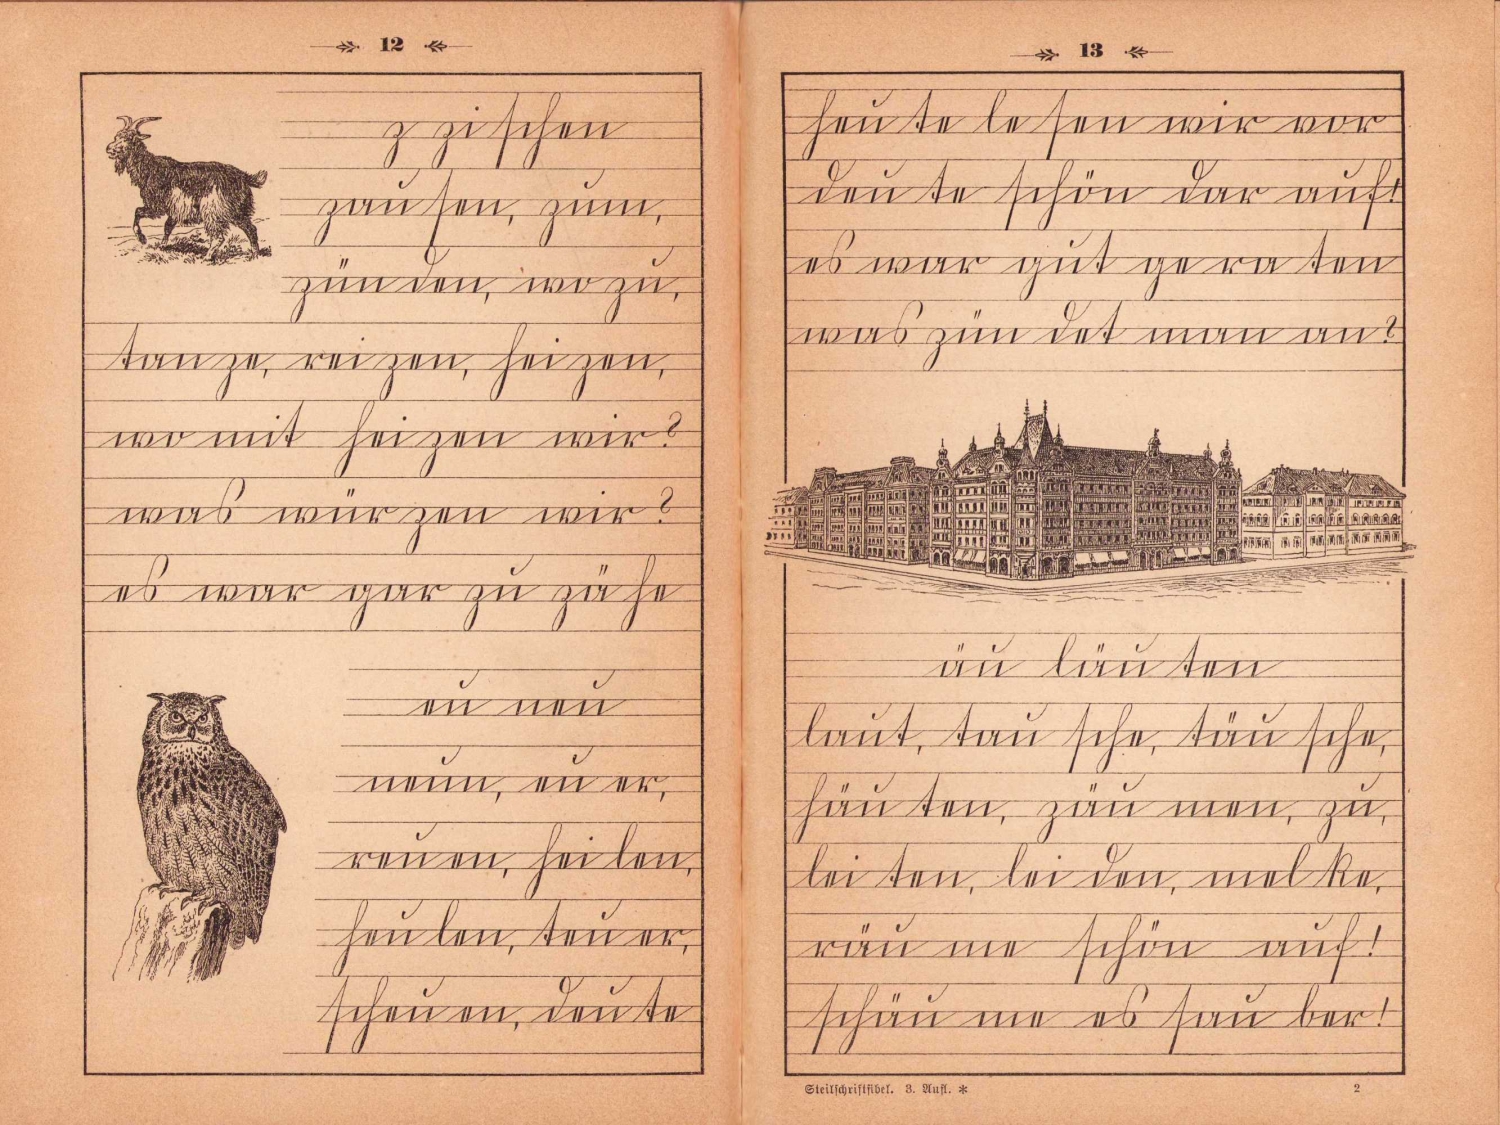 12
z zi schen
zau sen, zum,
zün den, wo zu,
tan ze, rei zen, hei zen,
wo mit hei zen wir?
was wür zen wir?
es war gar zu zä he
eu neu
neun, eu er,
reu en, hei len,
heu len, teu er,
scheu en, deu te
13
heu te le sen wir vor
deu te schön dar auf!
es war gut ge ra ten
was zün det man an?
äu läu ten
laut, tau sche, täu sche,
häu ten, zäu men, zu,
lei ten, lei den, mel ke,
räu me schön auf!
schäu me es sau ber!
Steilschriftfibel. 3. Aufl. *
2